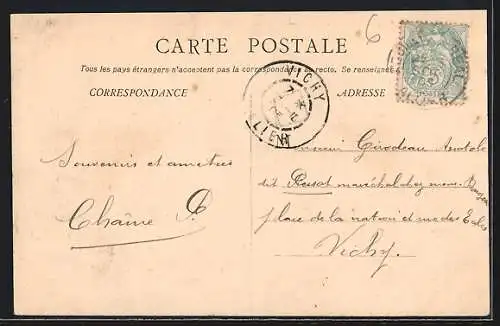 6
CARTE POSTALE
Tous les pays étrangers n'acceptent pas la correspondance au recto. Se renseigner
CORRESPONDANCE
ADRESSE
VICHY
ALLIER
Souvenirs et amitiés
Chaîne P.
Monsieur Girodeau Anatole
dit maréchal chez mons.
place de la nation et rue des Ecoles
Vichy.